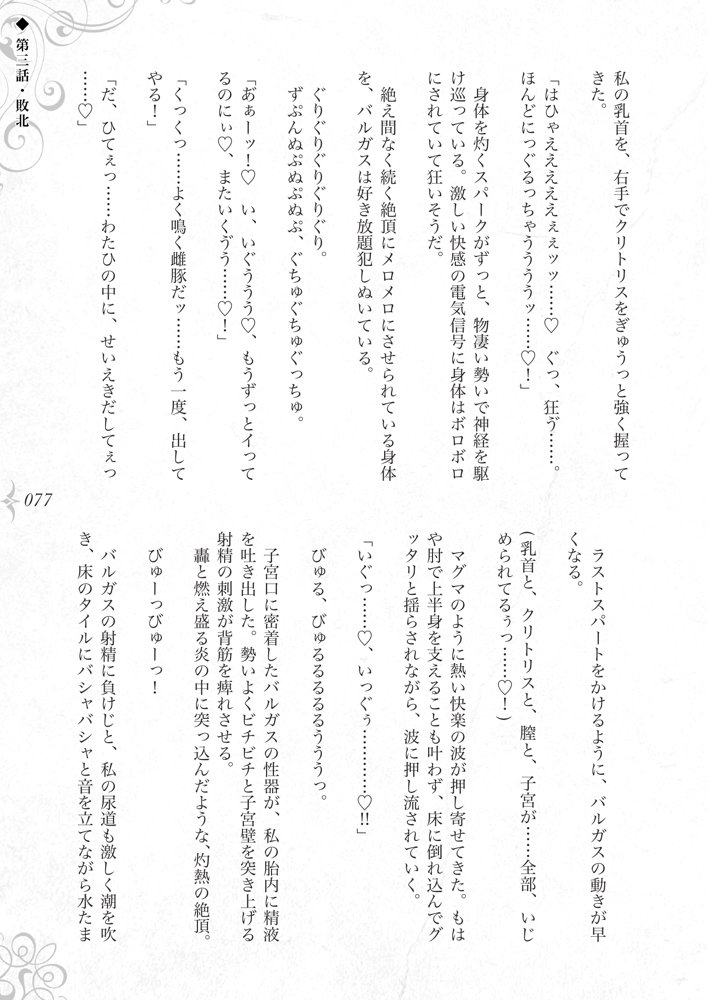 ◆ 第三話・敗北
私の乳首を、右手でクリトリスをぎゅうっと強く握って
きた。
「はひゃええええぇぇッッ……♡ ぐっ、狂ゔ……。
ほんどにっぐるっちゃううううッ……♡！」
身体を灼くスパークがずっと、物凄い勢いで神経を駆
け巡っている。激しい快感の電気信号に身体はボロボロ
にされていて狂いそうだ。
絶え間なく続く絶頂にメロメロにさせられている身体
を、バルガスは好き放題犯しぬいている。
ぐりぐりぐりぐりぐり。
ずぷんぬぷぬぷぬぷ、ぐちゅぐちゅぐっちゅ。
「あ゙ぁーッ！♡ い、いぐううう♡、もうずっとイって
るのにぃ♡、またいくゔう……♡！」
「くっくっ……よく鳴く雌豚だッ……もう一度、出して
やる！」
「だ、ひてぇっ……わたひの中に、せいえきだしてぇっ
……♡」
077
ラストスパートをかけるように、バルガスの動きが早
くなる。
(乳首と、クリトリスと、膣と、子宮が……全部、いじ
められてるぅっ……♡！)
マグマのように熱い快楽の波が押し寄せてきた。もは
や肘で上半身を支えることも叶わず、床に倒れ込んでグ
ッタリと揺らされながら、波に押し流されていく。
「いぐっ……♡、いっぐぅ…………♡!!」
びゅる、びゅるるるるるうううっ。
子宮口に密着したバルガスの性器が、私の胎内に精液
を吐き出した。勢いよくビチビチと子宮壁を突き上げる
射精の刺激が背筋を痺れさせる。
轟と燃え盛る炎の中に突っ込んだような、灼熱の絶頂。
びゅーっびゅーっ！
バルガスの射精に負けじと、私の尿道も激しく潮を吹
き、床のタイルにバシャバシャと音を立てながら水たま